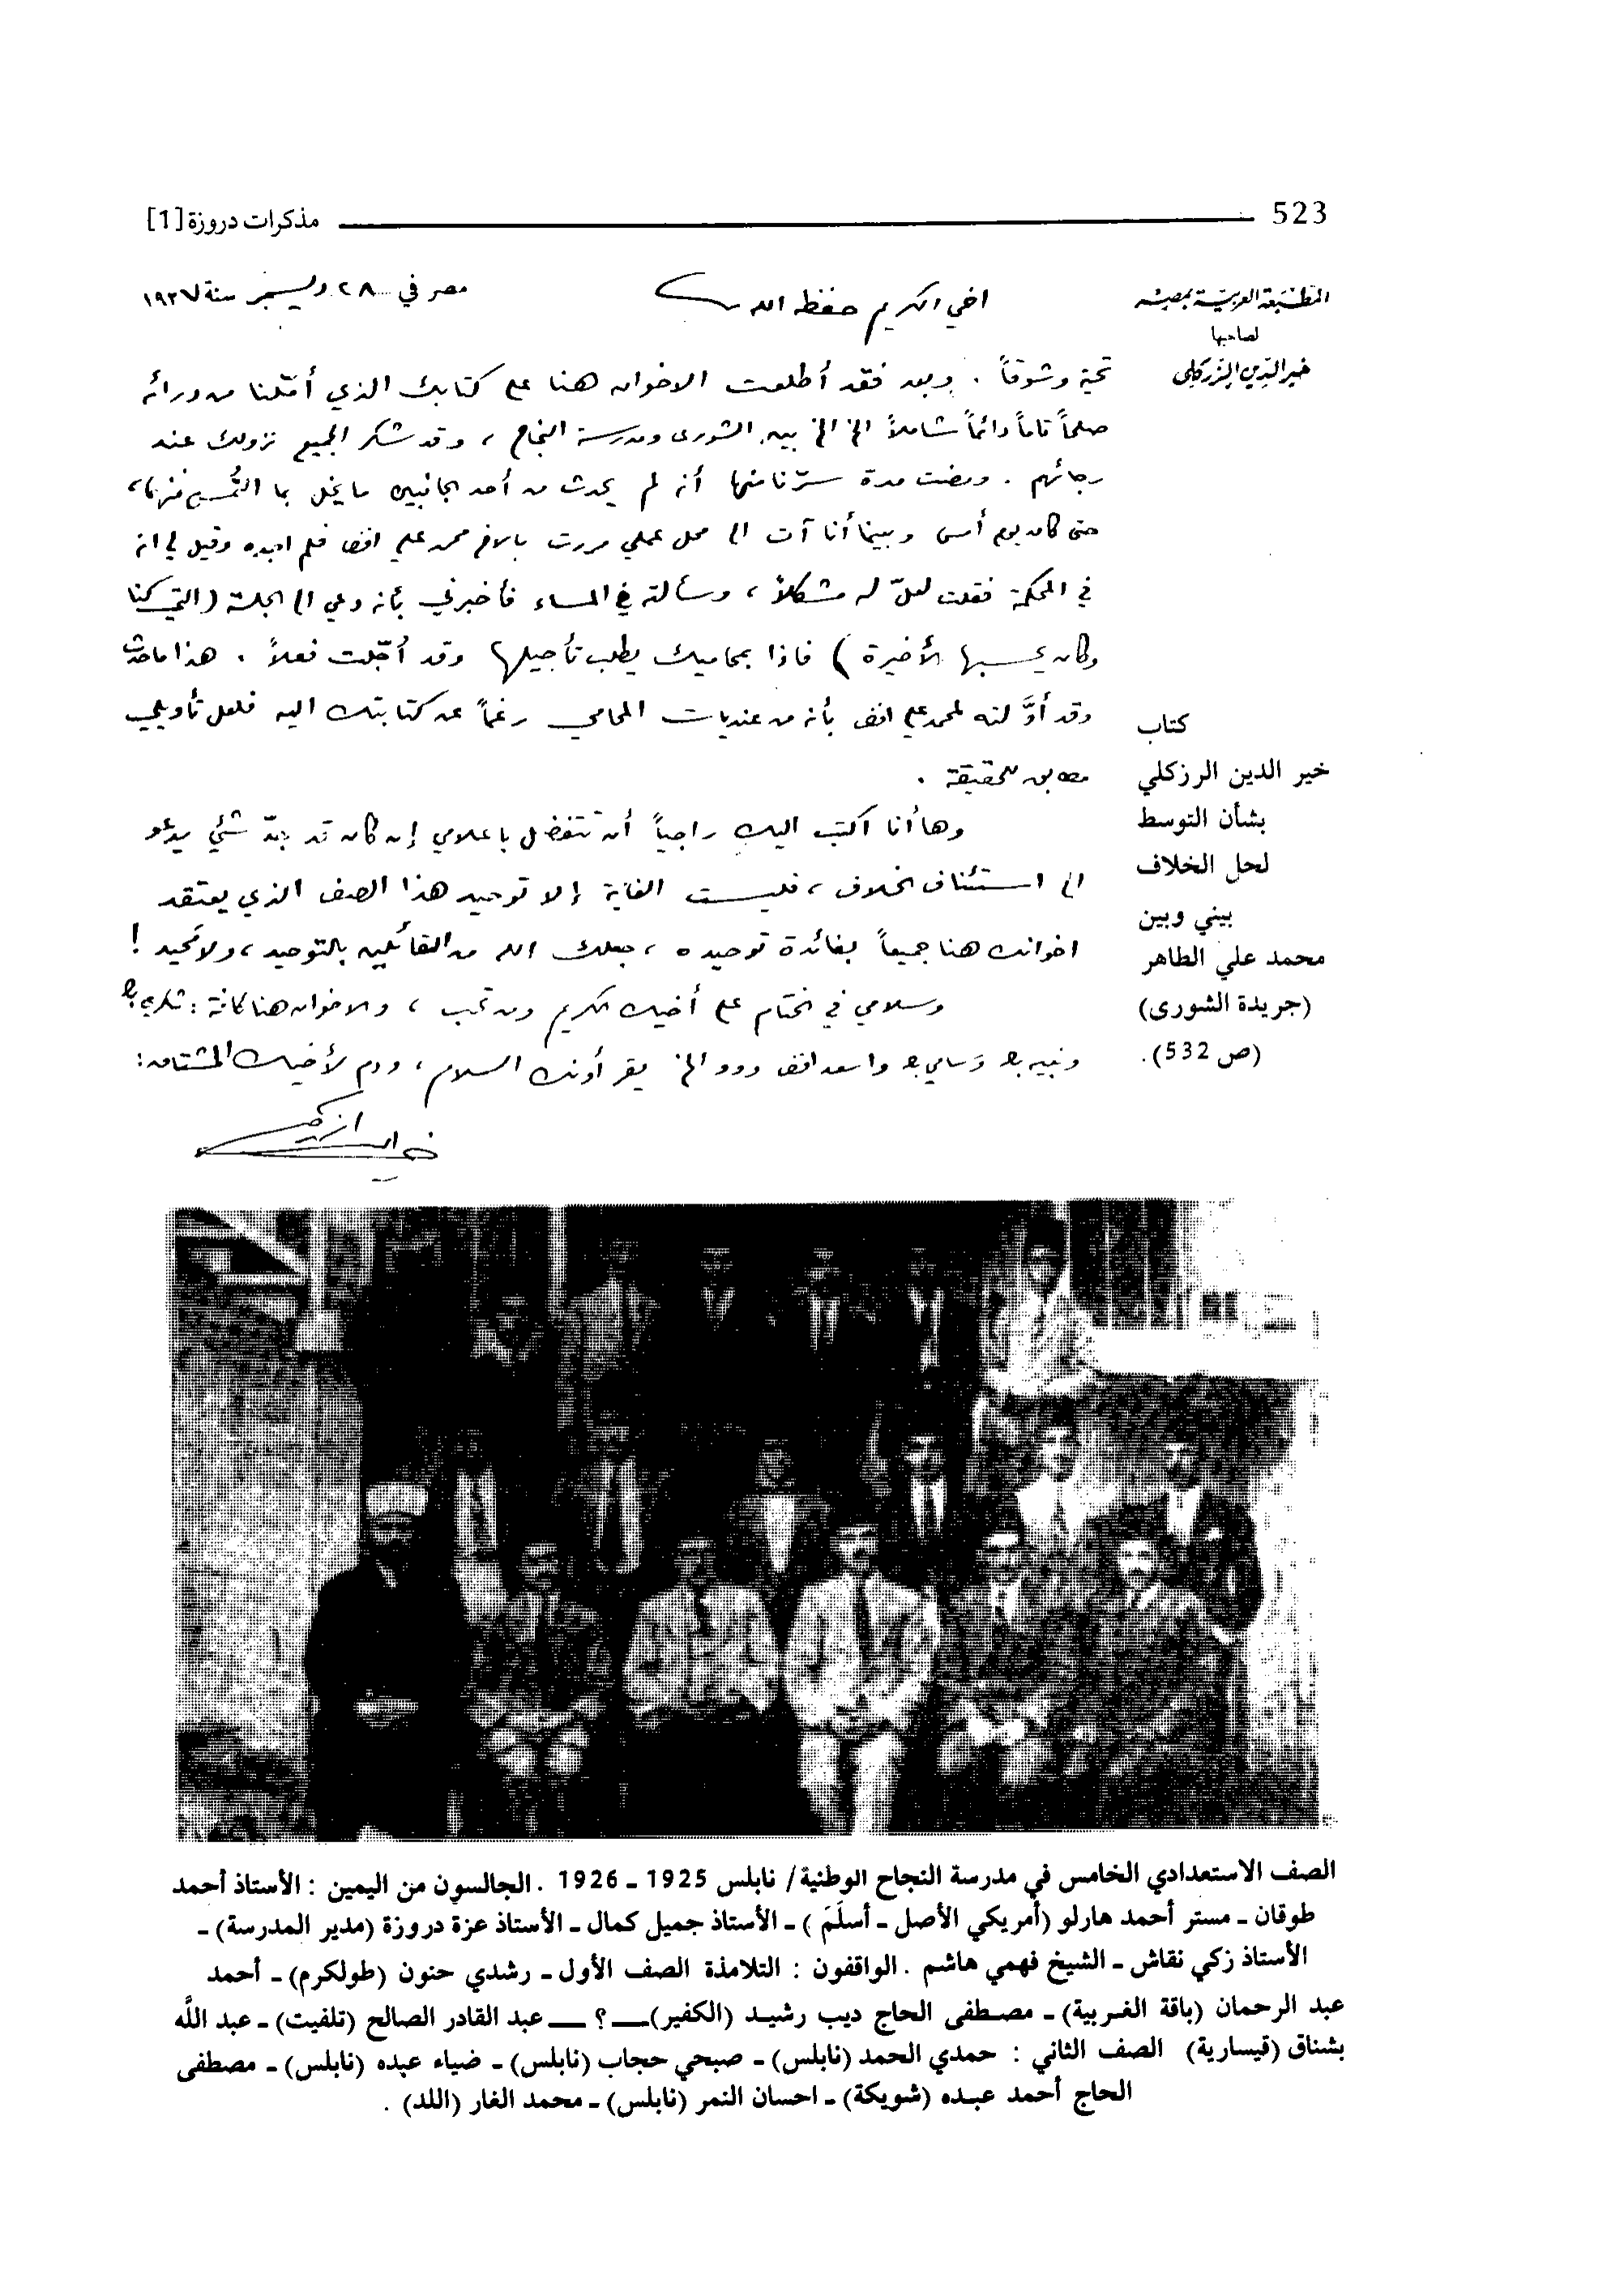 523 مذكرات دروزة [1]
المطبعة العربية بمصر
لصاحبها
خير الدين الزركلي
مصر في ٢٨ ديسمبر سنة ١٩٢٧
اخي الكريم حفظه الله
تحية وشوقاً . وبعد فقد أطلعت الاخوان هنا على كتابك الذي أمّلنا من ورائه
صلحاً تاماً دائماً شاملاً الخ الخ بين الشورى ومدرسة النجاح ، وقد شكر الجميع نزولك عند
رجائهم . ومضت مدة سرّنا منها أنه لم يحدث من أحد الجانبين ما يخل بما
حتى كان يوم أمس وبينما أنا آت الى محل عملي مررت بالاخ محمد علي افندي فلم اجده وقيل لي انه
في المحكمة فقلت لعلّ له مشكلاً ، وسألته في المساء فأخبرني بأنه دعي الى الجلسة (التي كنا
وكان يحسبها الأخيرة) فاذا بمحاميك يطلب تأجيلها وقد أُجّلت فعلاً . هذا ما حدث
وقد أوَّلته لمحمد علي افندي بأنه من عنديات المحامي رغماً عن كتابتك اليه فلعل تأويلي
للحقيقة .
وها أنا اكتب اليك راجياً أن تتفضل باعلامي إن كان قد جدّ شئ يدعو
الى استئناف الخلاف ، فليست الغاية إلا توحيد هذا الصف الذي يعتقد
اخوانك هنا جميعاً بفائدة توحيده ، جعلك الله من القائلين بالتوحيد ، ولا تحيد !
وسلامي في الختام على أخيك الكريم ومن تحب ، والاخوان هنا كافة : شكري بك
ونبيه بك وسامي بك واسعد افندي الخ يقرأونك السلام ، ودم لأخيك المشتاق :
خير الدين الزركلي
كتاب
خير الدين الرزكلي
بشأن التوسط
لحل الخلاف
بيني وبين
محمد علي الطاهر
(جريدة الشورى)
(ص 532).
الصف الاستعدادي الخامس في مدرسة النجاح الوطنية/ نابلس 1925 ـ 1926 . الجالسون من اليمين : الأستاذ أحمد
طوقان ـ مستر أحمد هارلو (أمريكي الأصل ـ أسلَمَ ) ـ الأستاذ جميل كمال ـ الأستاذ عزة دروزة (مدير المدرسة) ـ
الأستاذ زكي نقاش ـ الشيخ فهمي هاشم . الواقفون : التلامذة الصف الأول ـ رشدي حنون (طولكرم) ـ أحمد
عبد الرحمان (باقة الغربية) ـ مصطفى الحاج ديب رشيد (الكفير) ـ ؟ ـ عبد القادر الصالح (تلفيت) ـ عبد اللَّه
بشناق (قيسارية) الصف الثاني : حمدي الحمد (نابلس) ـ صبحي حجاب (نابلس) ـ ضياء عبده (نابلس) ـ مصطفى
الحاج أحمد عبده (شويكة) ـ احسان النمر (نابلس) ـ محمد الفار (اللد) .